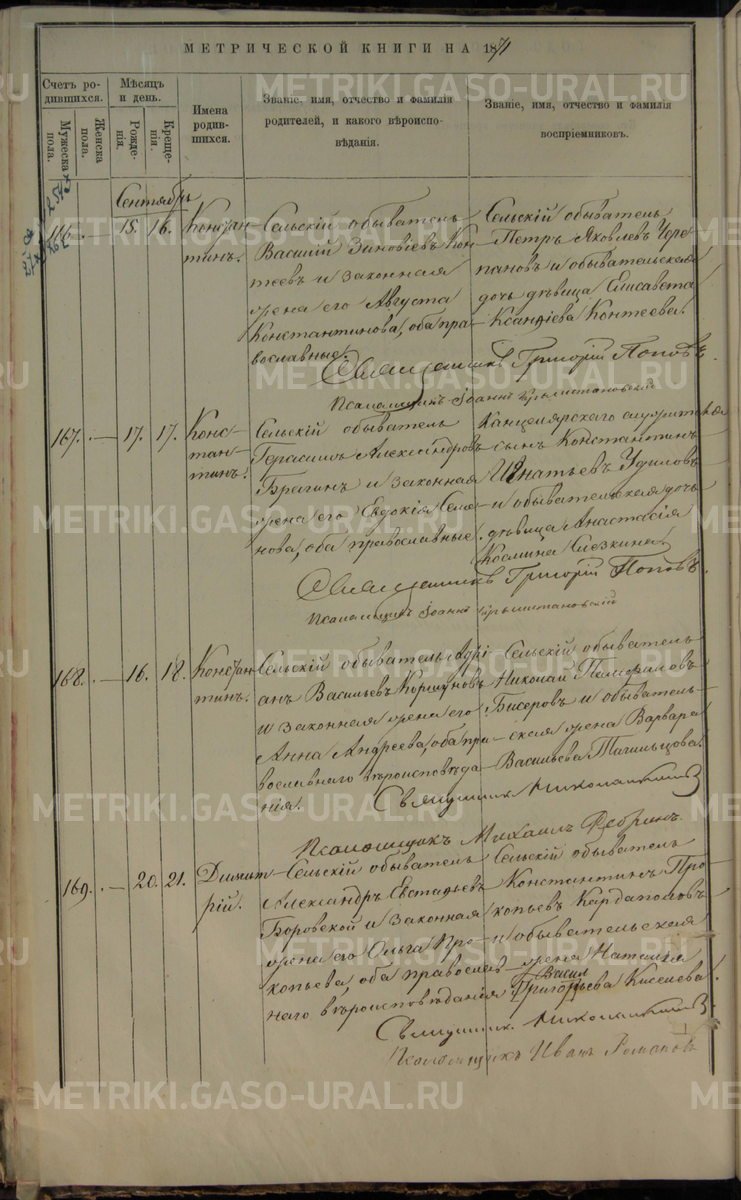 МЕТРИЧЕСКОЙ КНИГИ НА 1871
Счетъ ро-
дившихся.
Мужеска пола.
Женска пола.
Мѣсяцъ
и день.
Рожде-
нія.
Креще-
нія.
Имена
родив-
шихся.
Званіе, имя, отчество и фамилія
родителей, и какого вѣроиспо-
вѣданія.
Званіе, имя, отчество и фамилія
воспріемниковъ.
Сентябрь
166. — 15. 16.
Констан-
тинъ.
Сельскій обыватель
Василій Зиновіевъ Кон-
теевъ и законная
жена его Августа
Константинова, оба пра-
вославные.
Сельскій обыватель
Петръ Яковлевъ Чере-
пановъ и обывательская
дочь дѣвица Елисавета
Контеева.
Священникъ Григорій Поповъ.
Псаломщикъ Іоаннъ
167. — 17. 17.
Конс-
тан-
тинъ.
Сельскій обыватель
Герасимъ Александровъ
Брагинъ и законная
жена его Евдокія Семе-
нова, оба православные.
Канцелярскаго служителя
сынъ Константинъ
Игнатьевъ Удиловъ
и обывательская дочь
дѣвица Анастасія
Козмина Слезкина
Священникъ Григорій Поповъ.
Псаломщикъ Іоаннъ
168. — 16. 18.
Констан-
тинъ.
Сельскій обыватель Адрі-
анъ Васильевъ Коршуновъ
и законная жена его
Анна Андреева, оба пра-
вославнаго вѣроисповѣда-
нія.
Сельскій обыватель
Николай Памфиловъ
Бисеровъ и обыватель-
ская жена Варвара
Васильева Тагильцова.
Священникъ
Псаломщикъ Михаилъ Ребринъ
169. — 20. 21.
Димит-
рій.
Сельскій обыватель
Александръ Евстафьевъ
Боровской и законная
жена его Ольга Про-
копьева, оба православ-
наго вѣроисповѣданія
Сельскій обыватель
Константинъ Про-
копьевъ Кардаполовъ
и обывательская
жена Наталия
Васил
Григорьева Киселева.
Священникъ
Псаломщикъ Иванъ Романовъ
METRIKI.GASO-URAL.RU